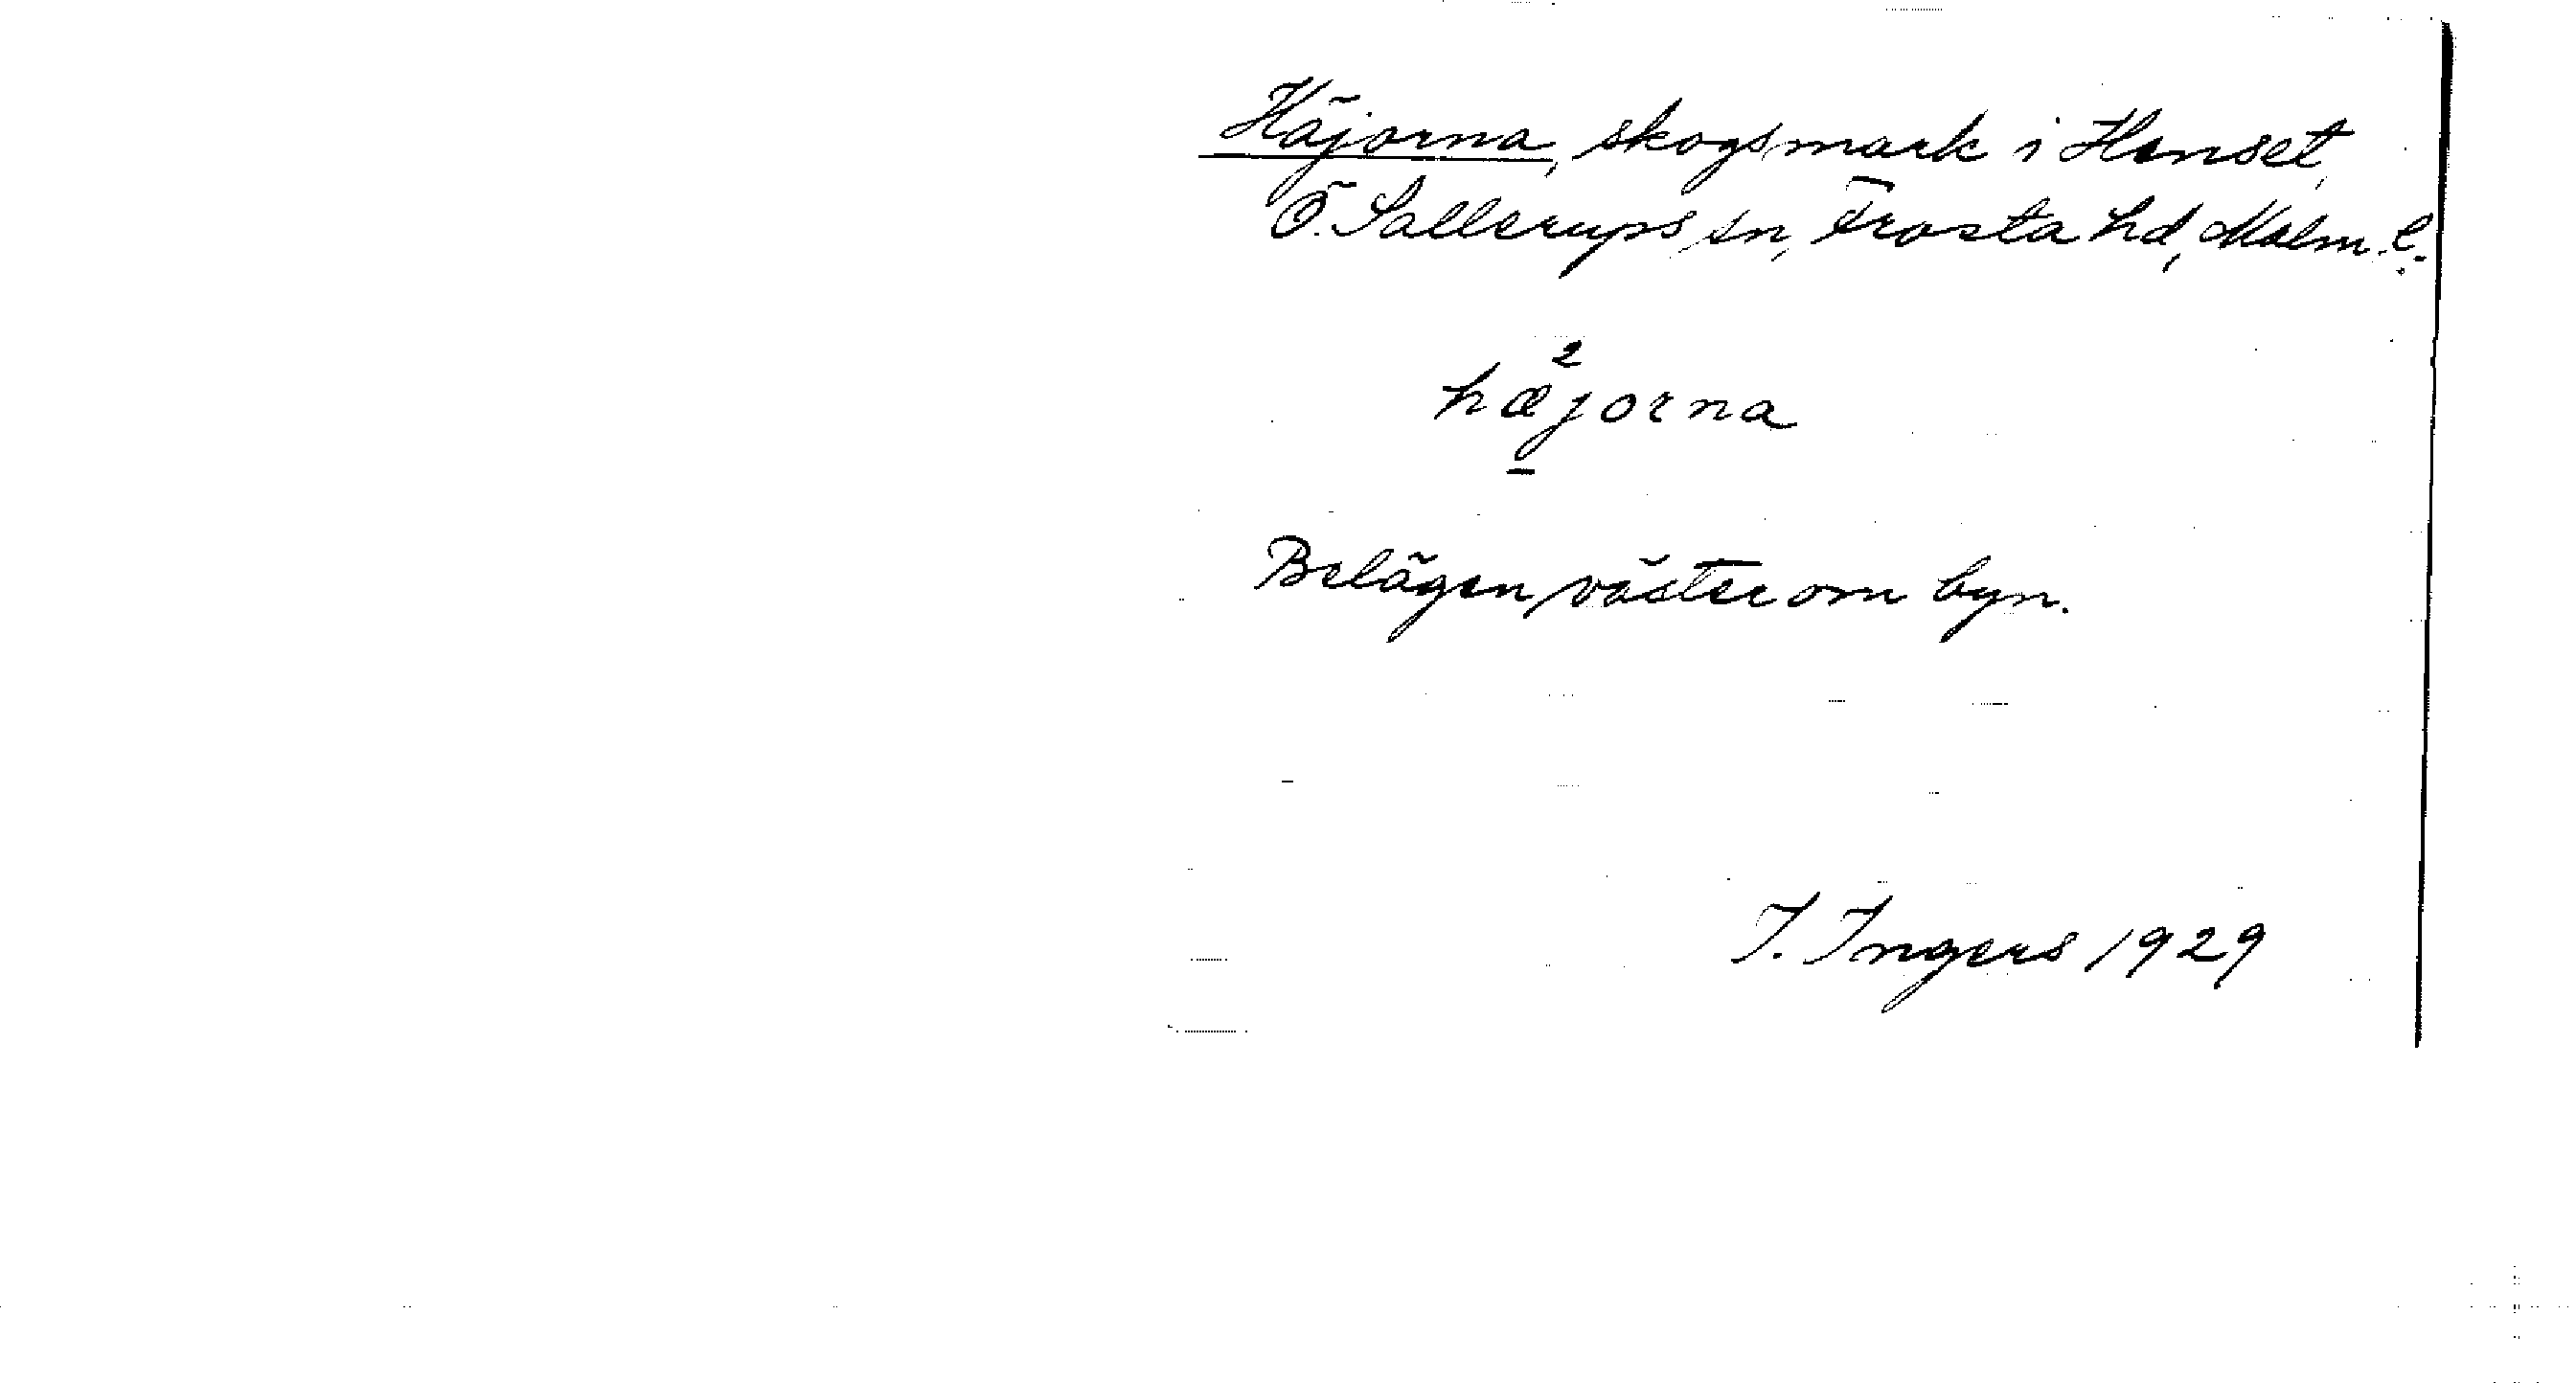 Häjorna, skogsmark i Hanset,
Ö. Sallerups sn, Frosta hd, Malm. l.
hæ²jorna
Belägen väster om byn.
I. Ingers 1929